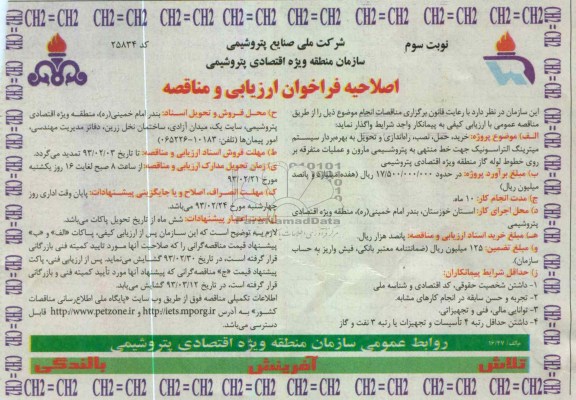 CH2 = CH2 CH2 = CH2 CH2 = CH2 CH2 = CH2 CH2 = CH2 CH2 = CH2
نوبت سوم
شرکت ملی صنایع پتروشیمی
کد ۲۵۸۳۴
سازمان منطقه ویژه اقتصادی پتروشیمی
اصلاحیه فراخوان ارزیابی و مناقصه
این سازمان در نظر دارد با رعایت قانون برگزاری مناقصات انجام موضوع ذیل را از طریق
مناقصه عمومی با ارزیابی کیفی به پیمانکار واجد شرایط واگذار نماید:
الف) موضوع پروژه: خرید، حمل، نصب، راه‌اندازی و تحویل به بهره‌بردار سیستم
میترینگ التراسونیک جهت خط منتهی به پتروشیمی مارون و عملیات متفرقه بر
روی خطوط لوله گاز منطقه ویژه اقتصادی پتروشیمی
ب) مبلغ برآورد پروژه: در حدود ۱۷/۵۰۰/۰۰۰/۰۰۰ ریال (هفده میلیارد و پانصد
میلیون ریال)
ج) مدت انجام کار: ۱۰ ماه
د) محل اجرای کار: استان خوزستان، بندر امام خمینی(ره)، منطقه ویژه اقتصادی
پتروشیمی
هـ) مبلغ خرید اسناد ارزیابی و مناقصه: پانصد هزار ریال
و) مبلغ تضمین: ۱۲۵ میلیون ریال (ضمانتنامه معتبر بانکی، فیش واریز به حساب
سازمان)
ز) حداقل شرایط پیمانکاران:
۱- داشتن شخصیت حقوقی، کد اقتصادی و شناسه ملی
۲- تجربه و حسن سابقه در انجام کارهای مشابه.
۳- توانایی مالی، فنی و تجهیزاتی
۴- داشتن حداقل رتبه ۴ تأسیسات و تجهیزات یا رتبه ۳ نفت و گاز
ح) محل فروش و تحویل اسناد: بندر امام خمینی(ره)، منطقه ویژه اقتصادی
پتروشیمی، سایت یک، میدان آزادی، ساختمان نخل زرین، دفاتر مدیریت مهندسی،
امور پیمان‌ها (تلفن: ۱۰۱۸۳-۰۶۵۲۳۶)
ط) مهلت فروش اسناد ارزیابی و مناقصه: تا تاریخ ۹۳/۰۲/۰۳ تمدید می‌گردد.
ی) زمان تحویل مدارک ارزیابی و مناقصه: از ساعت ۸ صبح لغایت ۱۶ روز یکشنبه
مورخ ۹۳/۰۲/۲۱
ک) مهلت انصراف، اصلاح و یا جایگزینی پیشنهادات: پایان وقت اداری روز
چهارشنبه مورخ ۹۳/۰۲/۲۴ می‌باشد.
پیشنهادات: شش ماه از تاریخ تحویل پاکات می‌باشد.
لازم به توضیح است که این سازمان پس از ارزیابی کیفی، پاکات «الف» و «ب»
پیشنهاد قیمت مناقصه‌گرانی را که صلاحیت آنها مورد تایید کمیته فنی بازرگانی
قرار گرفته است، در تاریخ ۹۳/۰۲/۳۰ گشایش می‌نماید. پس از ارزیابی فنی، پاکت
پیشنهاد قیمت «ج» مناقصه‌گرانی که پیشنهاد آنها مورد تایید کمیته فنی و بازرگانی
قرار گرفته است، در تاریخ ۹۳/۰۳/۱۲ گشایش می‌یابد.
اطلاعات تکمیلی مناقصه فوق از طریق وب سایت «پایگاه ملی اطلاع‌رسانی مناقصات
کشور» به آدرس http://iets.mporg.ir و http://www.petzone.ir قابل
دسترسی می‌باشد.
روابط عمومی سازمان منطقه ویژه اقتصادی پتروشیمی
تلاش آفرینش بالندگی
CH2 = CH2 CH2 = CH2 CH2 = CH2 CH2 = CH2 CH2 = CH2 CH2 = CH2